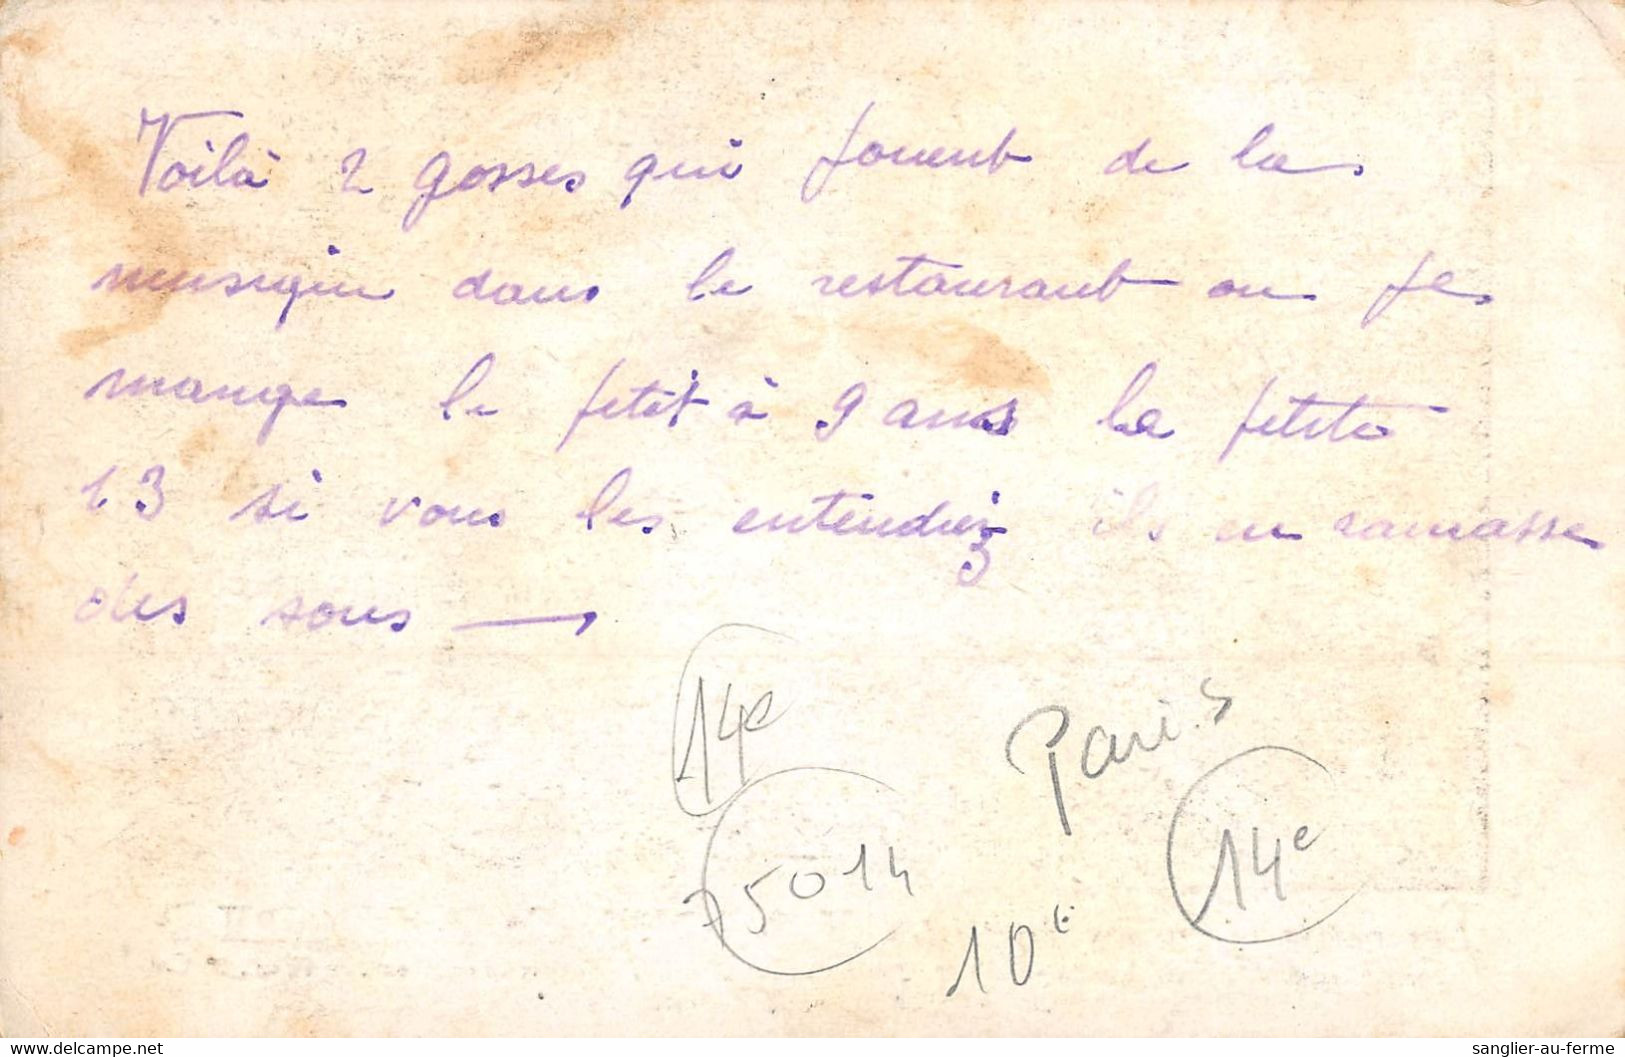 Voilà 2 gosses qui jouent de la
musique dans le restaurant ou je
mange le petit à 9 ans la petite
13 si vous les entendiez ils en ramasse
des sous —
14e
Paris
14e
75014
10e
delcampe.net
sanglier-au-ferme